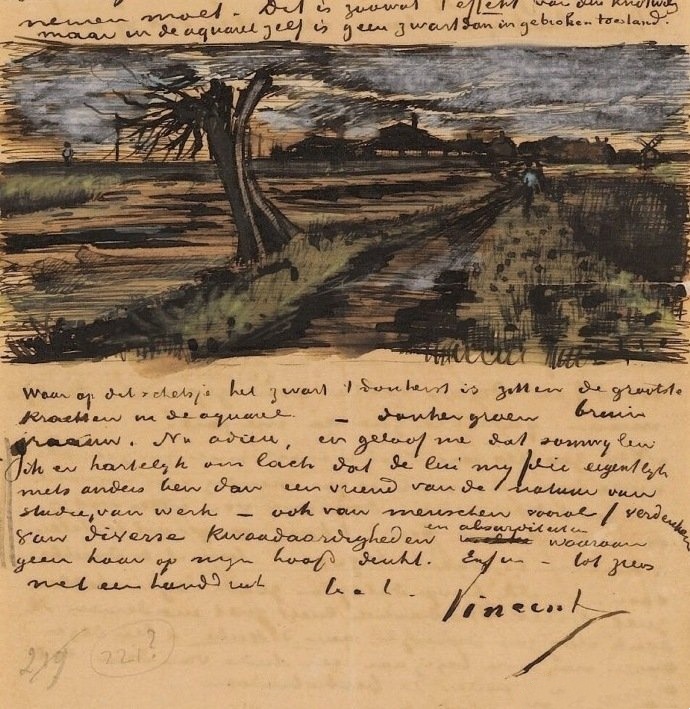 nemen moet. Dit is zoowat 't effekt van den knotwilg
maar in de aquarel zelf is geen zwart dan in gebroken toestand.
Waar op dit schetsje het zwart 't donkerst is zitten de grootste
krachten in de aquarel – donkergroen bruin
graauw. Nu adieu, en geloof me dat somwijlen
ik er hartelijk om lach dat de lui mij die eigentlijk
niets anders ben dan een vriend van de natuur van
studie, van werk – ook van menschen vooral / verdenken
van diverse kwaadaardigheden en absurditeiten waaraan
geen haar op mijn hoofd denkt. Enfin – tot ziens
met een handdruk t. à t.
Vincent
219 221?